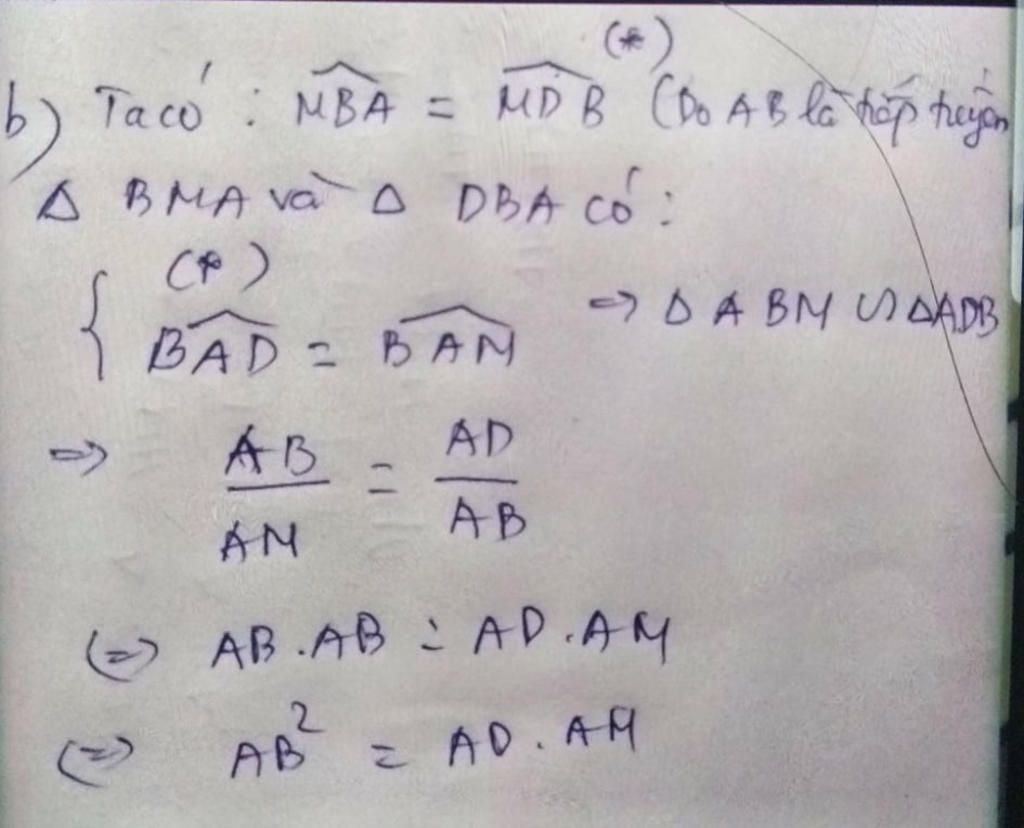 (*)
b) Ta có : MBA = MDB (Do AB là tiếp tuyến
Δ BMA và Δ DBA có :
(*)
{ BAD = BAM ⇒ Δ ABM ∽ Δ ADB
⇒ AB/AM = AD/AB
(=) AB.AB = AD.AM
(=) AB² = AD.AM